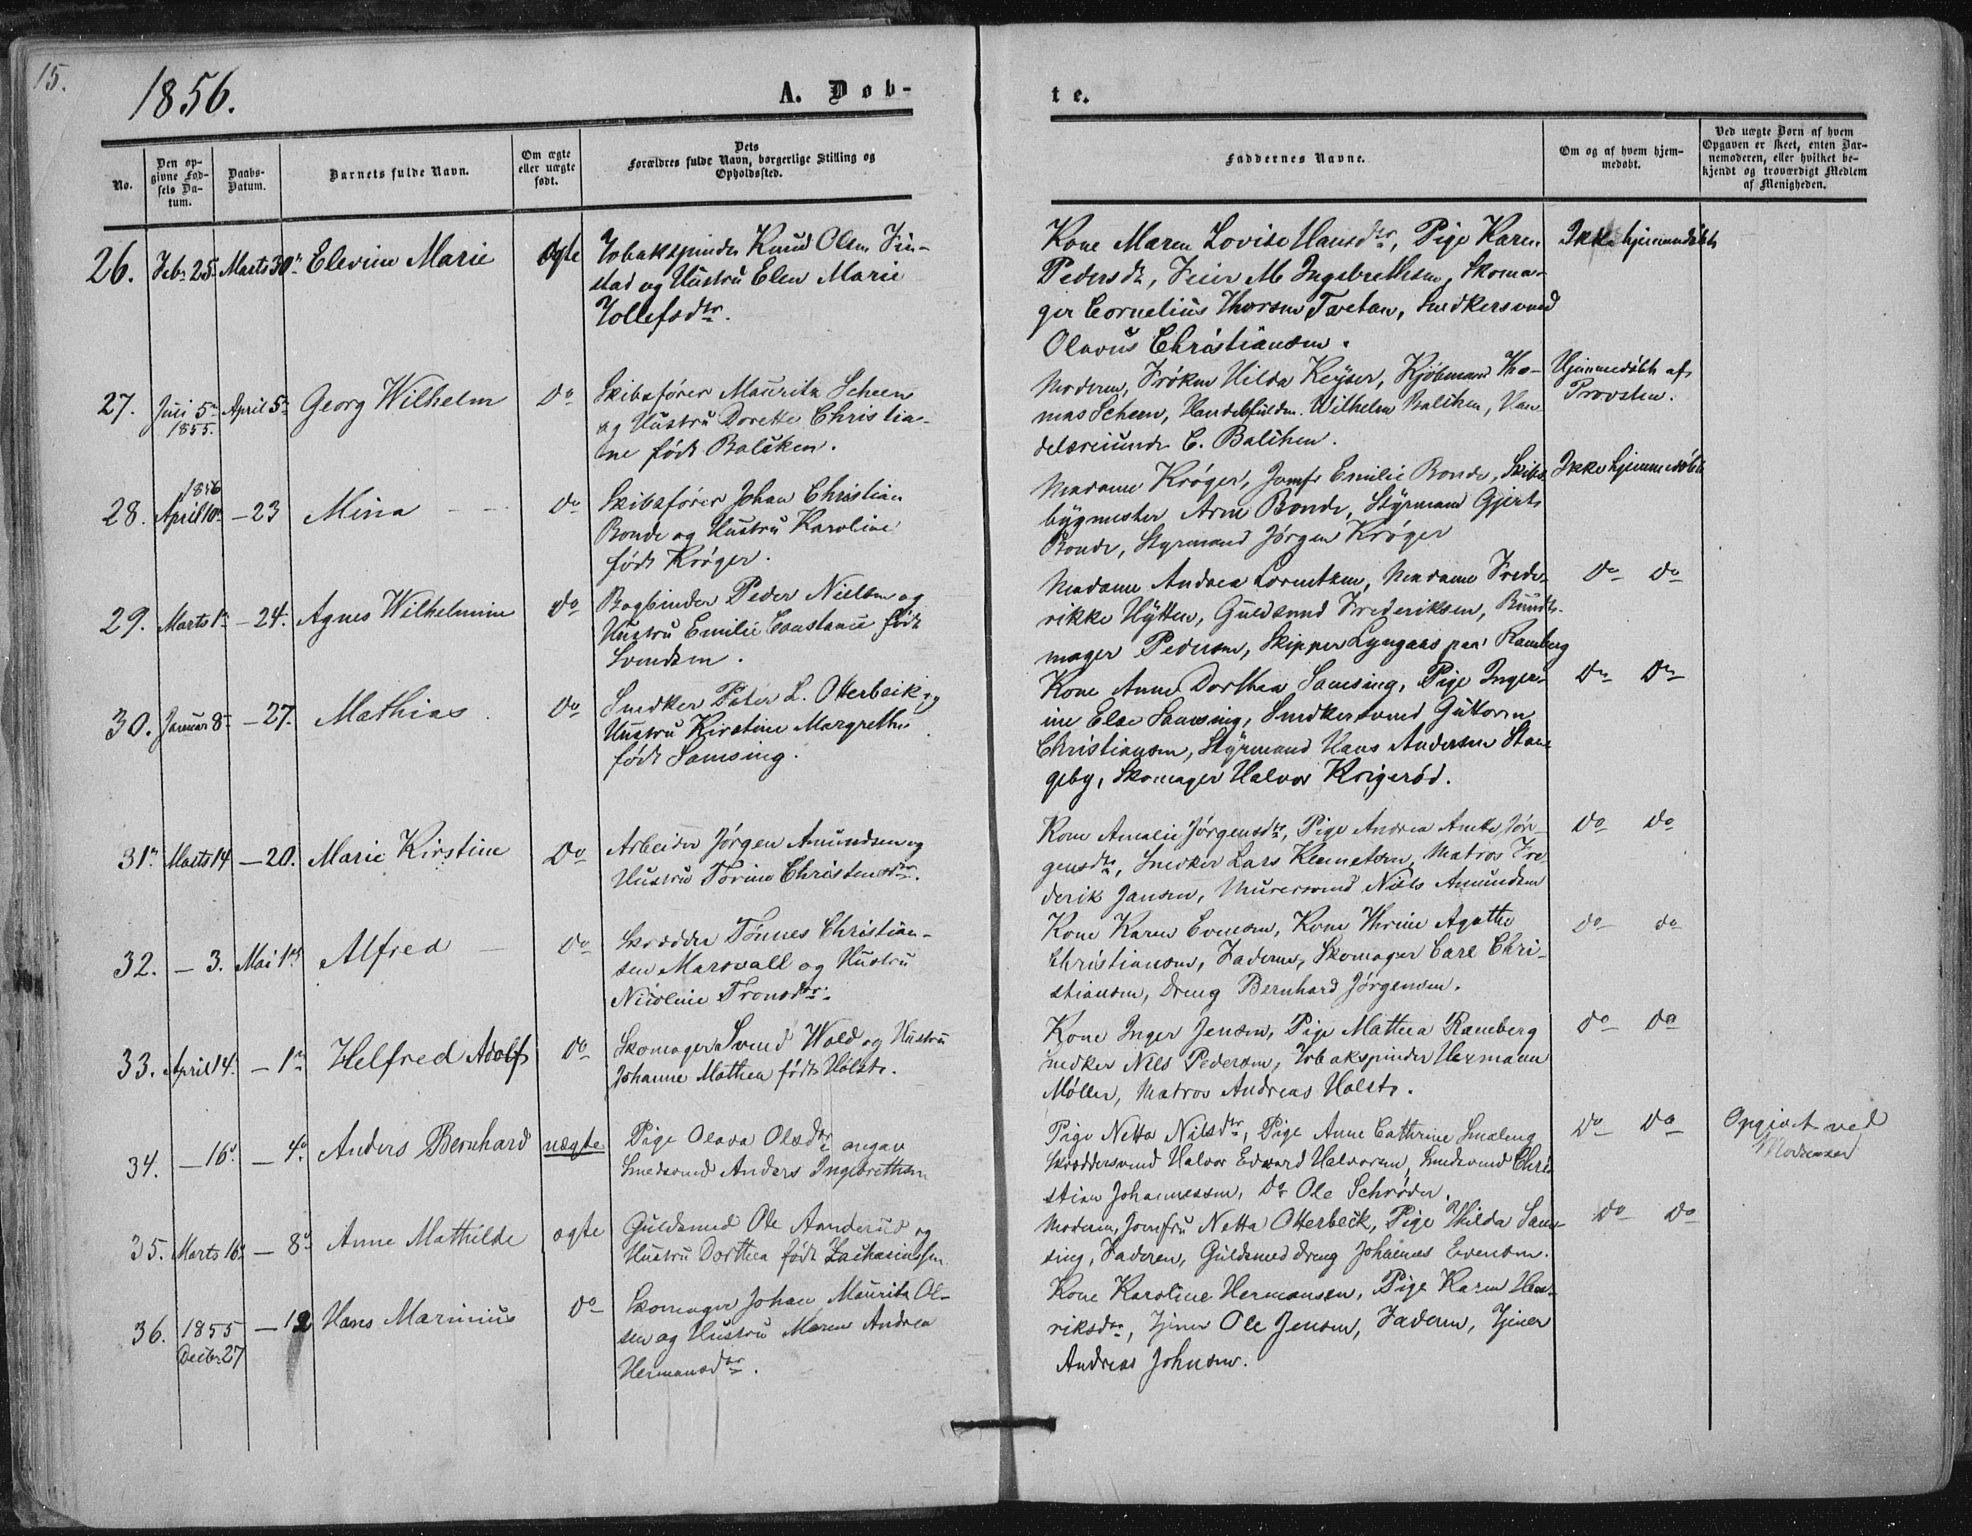 15.
1856.
A. Døb-
te.
No.
Den opgivne Fødsels Datum.
Daabs-Datum.
Barnets fulde Navn.
Om ægte eller uægte født.
Dets Forældres fulde Navn, borgerlige Stilling og Opholdssted.
Faddernes Navne.
Om og af hvem hjemmedøbt.
Ved uægte Børn af hvem Opgaven er skeet, enten Barnemoderen, eller hvilket bekjendt og troværdigt Medlem af Menigheden.
26. Febr 25. Marts 30 Elevine Marie ægte
Tobakspinder Knud Olsen Fin-
stad og Hustru Elen Marie
Tollefsdtr.
Kone Maren Lovise Hansdtr, Pige Karen
Pedersdt, Feier M Ingebrethsen, Skoma-
ger Cornelius Thorsen Tvetan, Snedkersvend
Olavus Christiansen.
Ikke hjemmedøbt
27. Juni 5 1855. April 5 Georg Wilhelm Do
Skibsfører Mauritz Scheen
og Hustru Dorette Christia-
ne født Balcken.
Moderen, Frøken Hilda Keyser, Kjøbmand Tho-
mas Scheen, Handelsfuldm. Wilhelm Balchen, Han
delsreisende C. Balchen.
Hjemmedøbt af
Provsten.
28. 1856 April 10 - 23 Mina Do
Skibsfører Johan Christian
Bonde og Hustru Karoline
født Krøger.
Madame Krøger, Jomfr Emilie Bonde, Skibs
bygmester Arne Bonde, Styrmand Gjert
Bonde, Styrmand Jørgen Krøger
Ikke hjemmedøbt
29. Marts 1 - 24. Agnes Wilhelmine Do
Bogbinder Peder Nielsen og
Hustru Emilie Constance født
Svendsen.
Madame Andrea Lorentzen, Madame Frede-
rikke Hytten, Guldsmed Frederiksen,
mager Pedersen, Skipper Lyngaas paa Ramberg
Do Do
30. Januar 8 - 27. Mathias Do
Snedker Peter L. Otterbeck og
Hustru Kirstine Margrethe
født Samsing.
Kone Anne Dorthea Samsing, Pige Inger-
ine Else Samsing, Snedkersvend Guttorm
Christiansen, Styrmand Hans Andersen Stan
geby, Skomager Halvor Krigerød.
Do Do
31 Marts 14 - 20. Marie Kirstine Do
Arbeider Jørgen Amundsen og
Hustru Torine Christensdtr.
Kone Amalie Jørgensdtr, Pige Andrea Jør-
gensdtr, Snedker Lars Klemetsen, Matros Fre-
derik Jansen, Murersvend Niels Amundsen
Do Do
32. - 3. Mai 1ste Alfred - Do
Skrædder Tønnes Christian-
sen Marsvall og Hustru
Nicoline Tronsdtr.
Kone Karen Evensen, Kone Thrine Agathe
Christiansen, Faderen, Skomager Carl Chri-
stiansen, Dreng Bernhard Jørgensen.
Do do
33. April 14. - 1 Helfred Adolf Do
Skomager Svend Wold og Hustru
Johanne Mathea født Holst.
Kone Inger Jensen, Pige Mathea Ramberg
Snedker Nils Pedersen, Tobakspinder Hermann
Møller, Matros Andreas Holst.
Do Do
34. - 16 - 4 Anders Bernhard uægte
Pige Olava Olsdtr angav
Smedsvend Anders Ingebrethsen
Pige Netta Nilsdtr, Pige Anne Cathrine Smaleng
Skræddersvend Halvor Edvard Halvorsen, Smedsvend Chri
stian Johannessen, Do Ole Schrøder.
Do Do
Opgivet ved
Moderen
35. Marts 16 - 8 Anne Mathilde ægte
Guldsmed Ole Aanderud og
Hustru Dorthea født Zachariassen
Moderen, Jomfru Netta Otterbeck, Pige Hilda Sam
sing, Faderen, Guldsmeddreng Johannes Evensen.
Do Do
36. 1855 Decbr 27 - 12 Hans Marinius Do
Skomager Johan Mauritz Ol-
sen og Hustru Maren Andrea
Hermansdtr.
Kone Karoline Hermansen, Pige Karen Hen-
riksdtr, Tjener Ole Jensen, Faderen, Tjener
Andreas Johnsen.